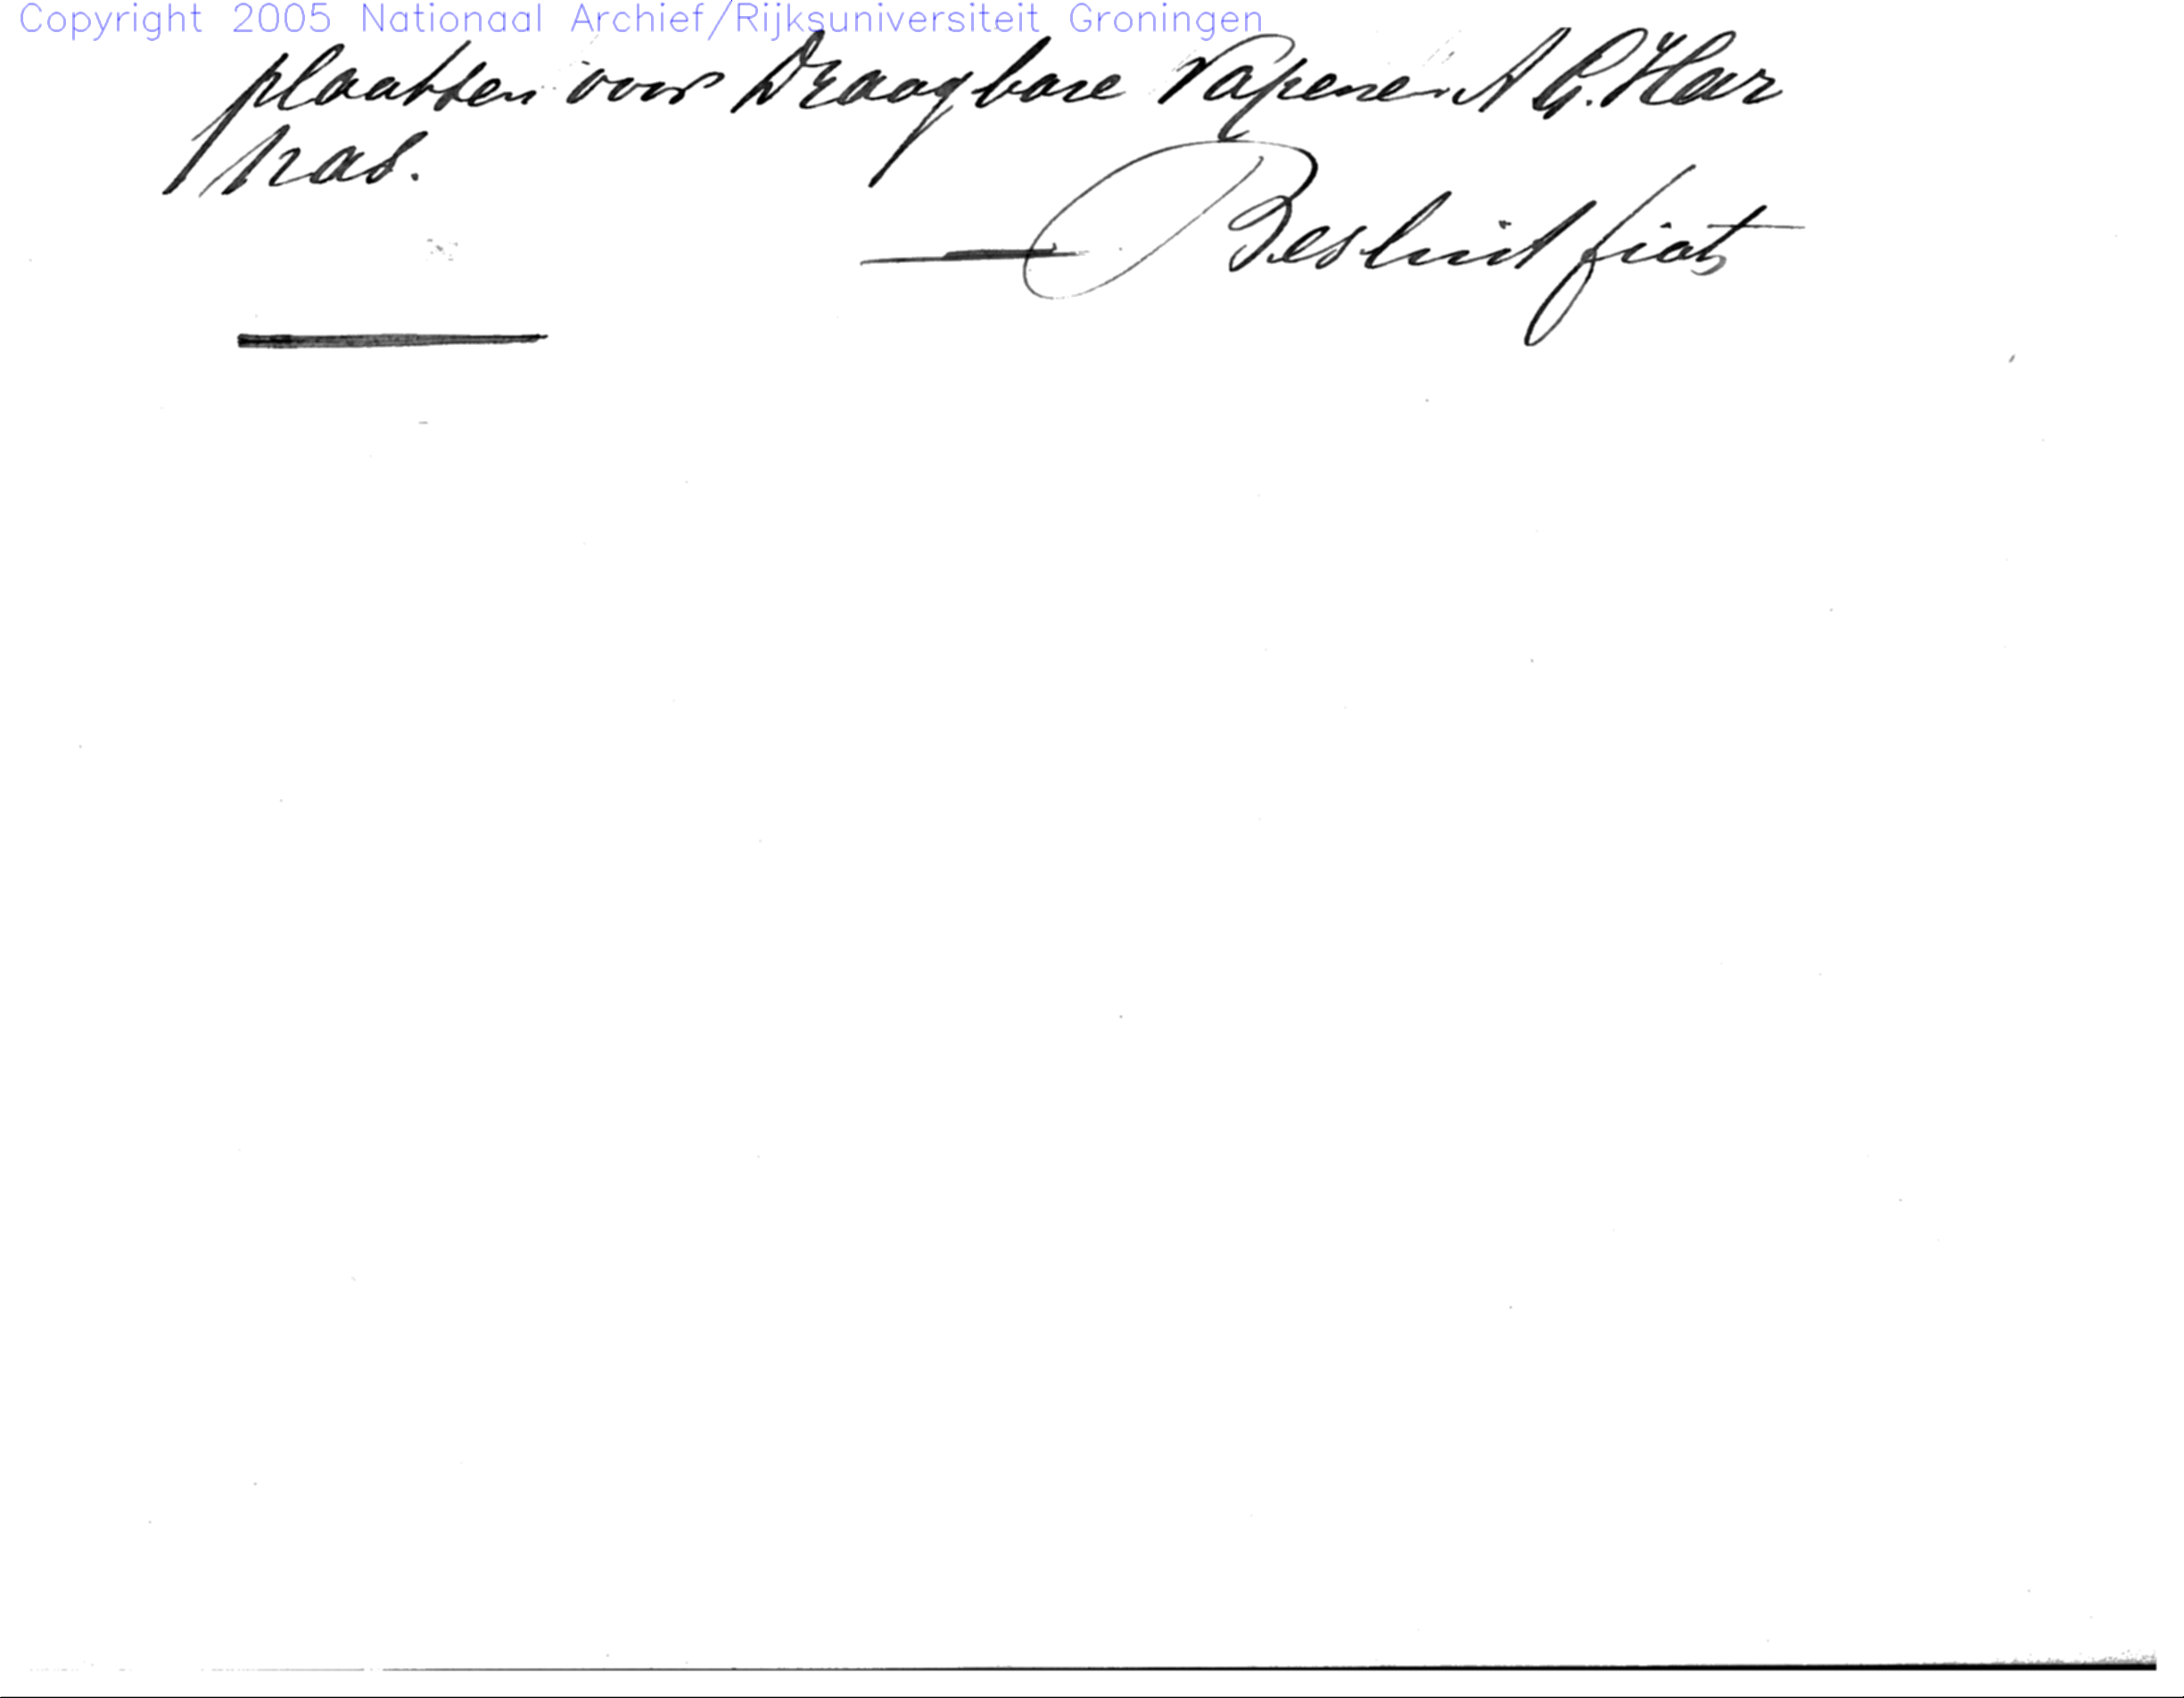 Copyright 2005 Nationaal Archief/Rijksuniversiteit Groningen
plaatsen voor Draagbare Wapenen A G. Har
kas.
Besluit fiat